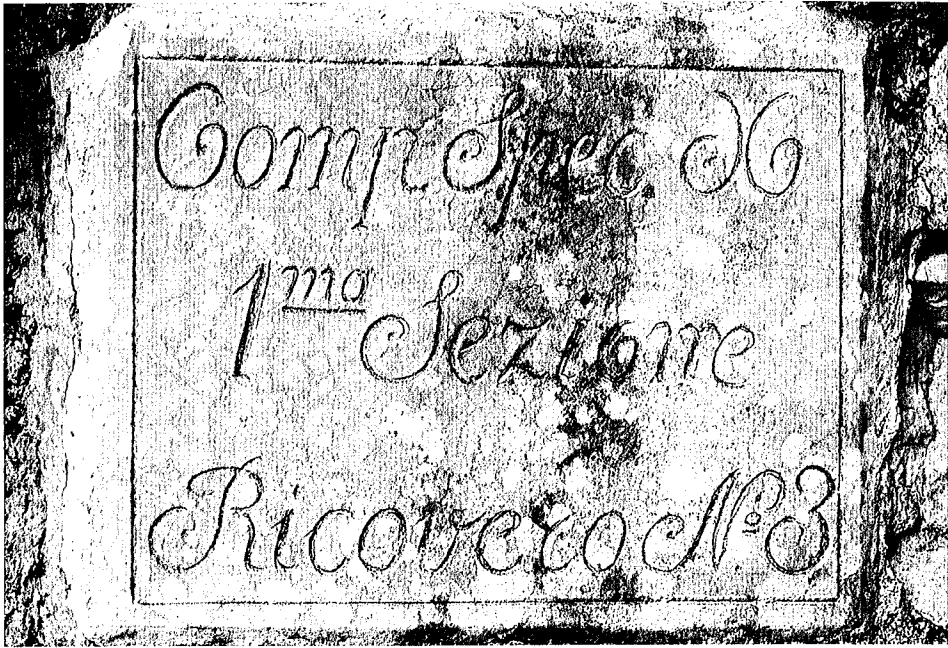 Comp. Spec X
1ma Sezione
Ricovero No 3